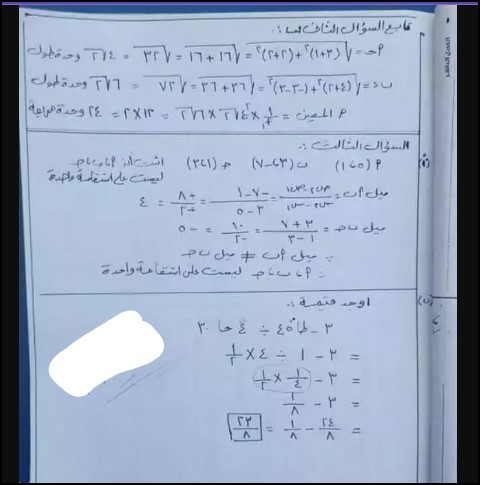 تابع السؤال الثاني
م حـ = √(٣+١)²+(٢+٢)² = √١٦+١٦ = √٣٢ = ٤√٢ وحدة طول
ب د = √(٤+٢)²+(-٣-٣)² = √٣٦+٣٦ = √٧٢ = ٦√٢ وحدة طول
م المعين = ١/٢ × ٤√٢ × ٦√٢ = ١٢×٢ = ٢٤ وحدة مربعة
السؤال الثالث :
(١،٥) ب (٣،-٧) جـ (١،٣) اثبت أن: أ، ب، جـ
ليست على استقامة واحدة
ميل أ ب = ص٢-ص١ / س٢-س١ = -٧-١ / ٣-٥ = -٨/-٢ = ٤
ميل ب جـ = ٣+٧ / ١-٣ = ١٠/-٢ = -٥
∴ ميل أ ب ≠ ميل ب جـ
∴ أ، ب، جـ ليست على استقامة واحدة
(ب) اوجد قيمة :
٣ - طا ٤٥ ÷ ٤ حا ٣٠
= ٣ - ١ ÷ ٤ × ١/٢
= ٣ - ١/٤ × ١/٢
= ٣ - ١/٨
= ٢٤/٨ - ١/٨ = ٢٣/٨